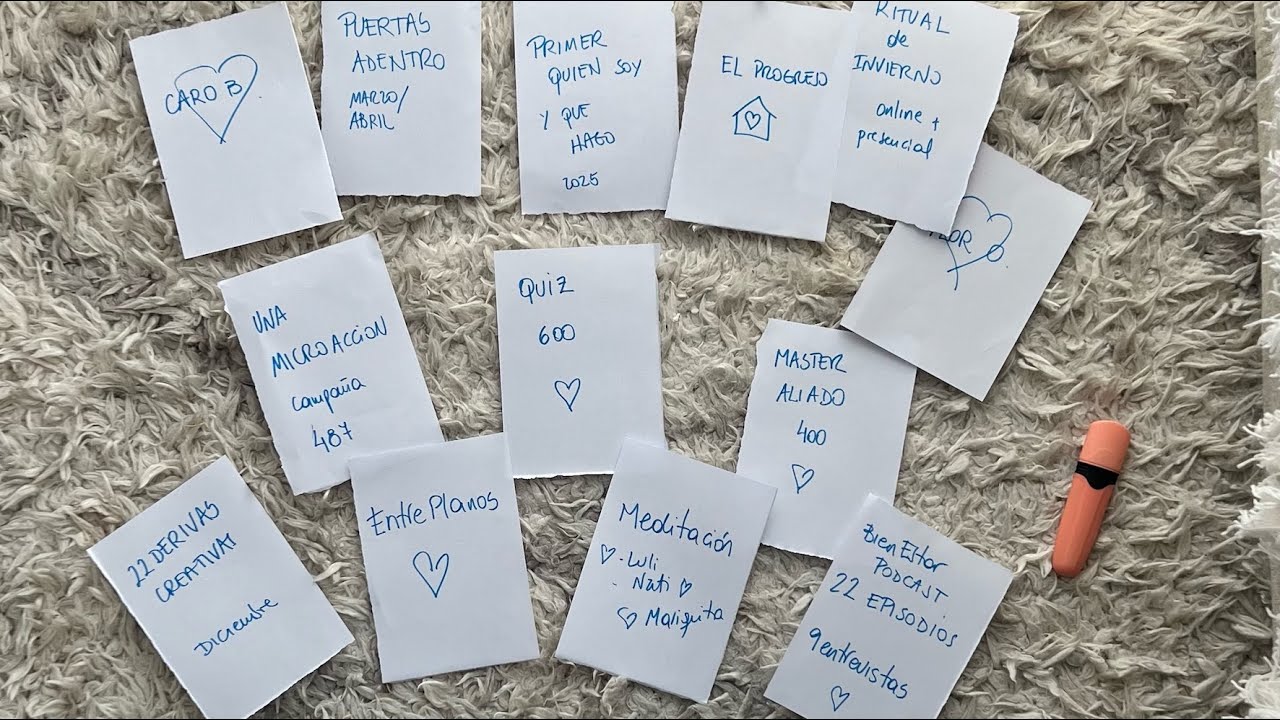 CARO B
PUERTAS
ADENTRO
MARZO/
ABRIL
PRIMER
QUIEN SOY
Y QUE
HAGO
2025
EL PROGRESO
RITUAL
de
INVIERNO
online +
presencial
UNA
MICROACCION
campaña
487
QUIZ
600
MASTER
ALIADO
400
22 DERIVAS
CREATIVAS
Diciembre
Entre Planos
Meditación
- Luli
- Nati
Maliquita
BienEstar
PODCAST
22 EPISODIOS
9 entrevistas